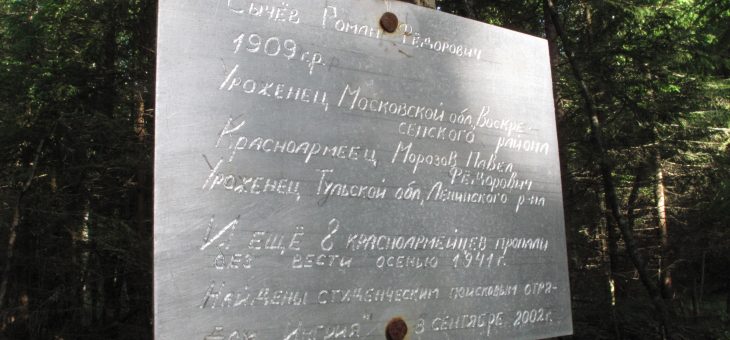 Сычёв Роман Фёдорович
1909 г.р.
Уроженец Московской обл, Воскре-
сенского района
Красноармеец Морозов Павел
Фёдорович
Уроженец Тульской обл, Ленинского р-на
И ещё 8 красноармейцев пропали
без вести осенью 1941 г.
Найдены студенческим поисковым отря-
дом "Ингрия" в сентябре 2002 г.